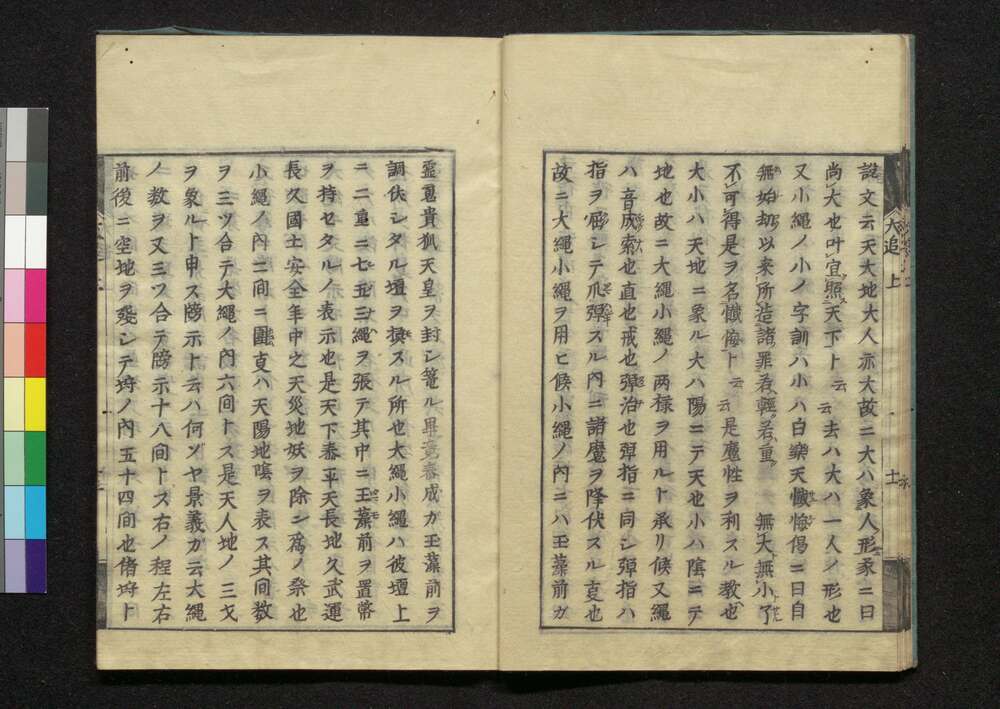 説文云天大地大人亦大故ニ大ハ象人形豖ニ曰
尚大也叶宜照天下ト云云去ハ大ハ一人ノ形也
又小縄ノ小ノ字訓ハ小ハ白樂天懺悔偈ニ曰自
無始劫以来所造諸罪若輕若重無大無小了
不可得是ヲ名懺悔ト云云是魔性ヲ利スル教也
大小ハ天地ニ象ル大ハ陽ニテ天也小ハ陰ニテ
地也故ニ大縄小縄ノ両様ヲ用ルト承リ候又縄
ハ音成索也直也戒也彈治也彈指ニ同シ彈指ハ
指ヲ屈シテ爪彈スル内ニ諸魔ヲ降伏スル㕝也
故ニ大縄小縄ヲ用ヒ候小縄ノ内ニハ玉藻前カ
大追 上
十一
靈鬼貴狐天皇ヲ封シ篭ル畢竟泰成カ玉藻前ヲ
調伏シタル壇ヲ摸スル所也大縄小縄ハ彼壇上
ニ二重ニ七五三縄ヲ張テ其中ニ玉藻前ヲ置幣
ヲ持セタルノ表示也是天下泰平天長地久武運
長久國土安全年中之天災地妖ヲ除ン爲ノ祭也
小縄ノ内二間ニ圍㕝ハ天陽地陰ヲ表ス其間数
ヲ三ツ合テ大縄ノ内六間トス是天人地ノ三才
ヲ象ルト申ス牓示ト云ハ何ソヤ景義カ云大縄
ノ数ヲ又三ツ合テ牓示十八間トス右ノ程左右
前後ニ空地ヲ殘シテ埒ノ内五十四間也偖埒ト